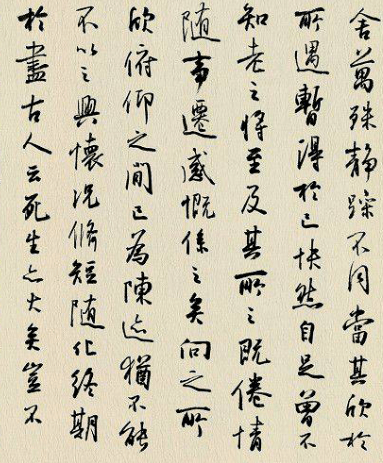 舍萬殊静躁不同當其欣於
所遇暫得於己快然自足曾不
知老之將至及其所之既倦情
随事遷感慨係之矣向之所
欣俯仰之間已為陳迹猶不能
不以之興懷況脩短随化終期
於盡古人云死生亦大矣豈不